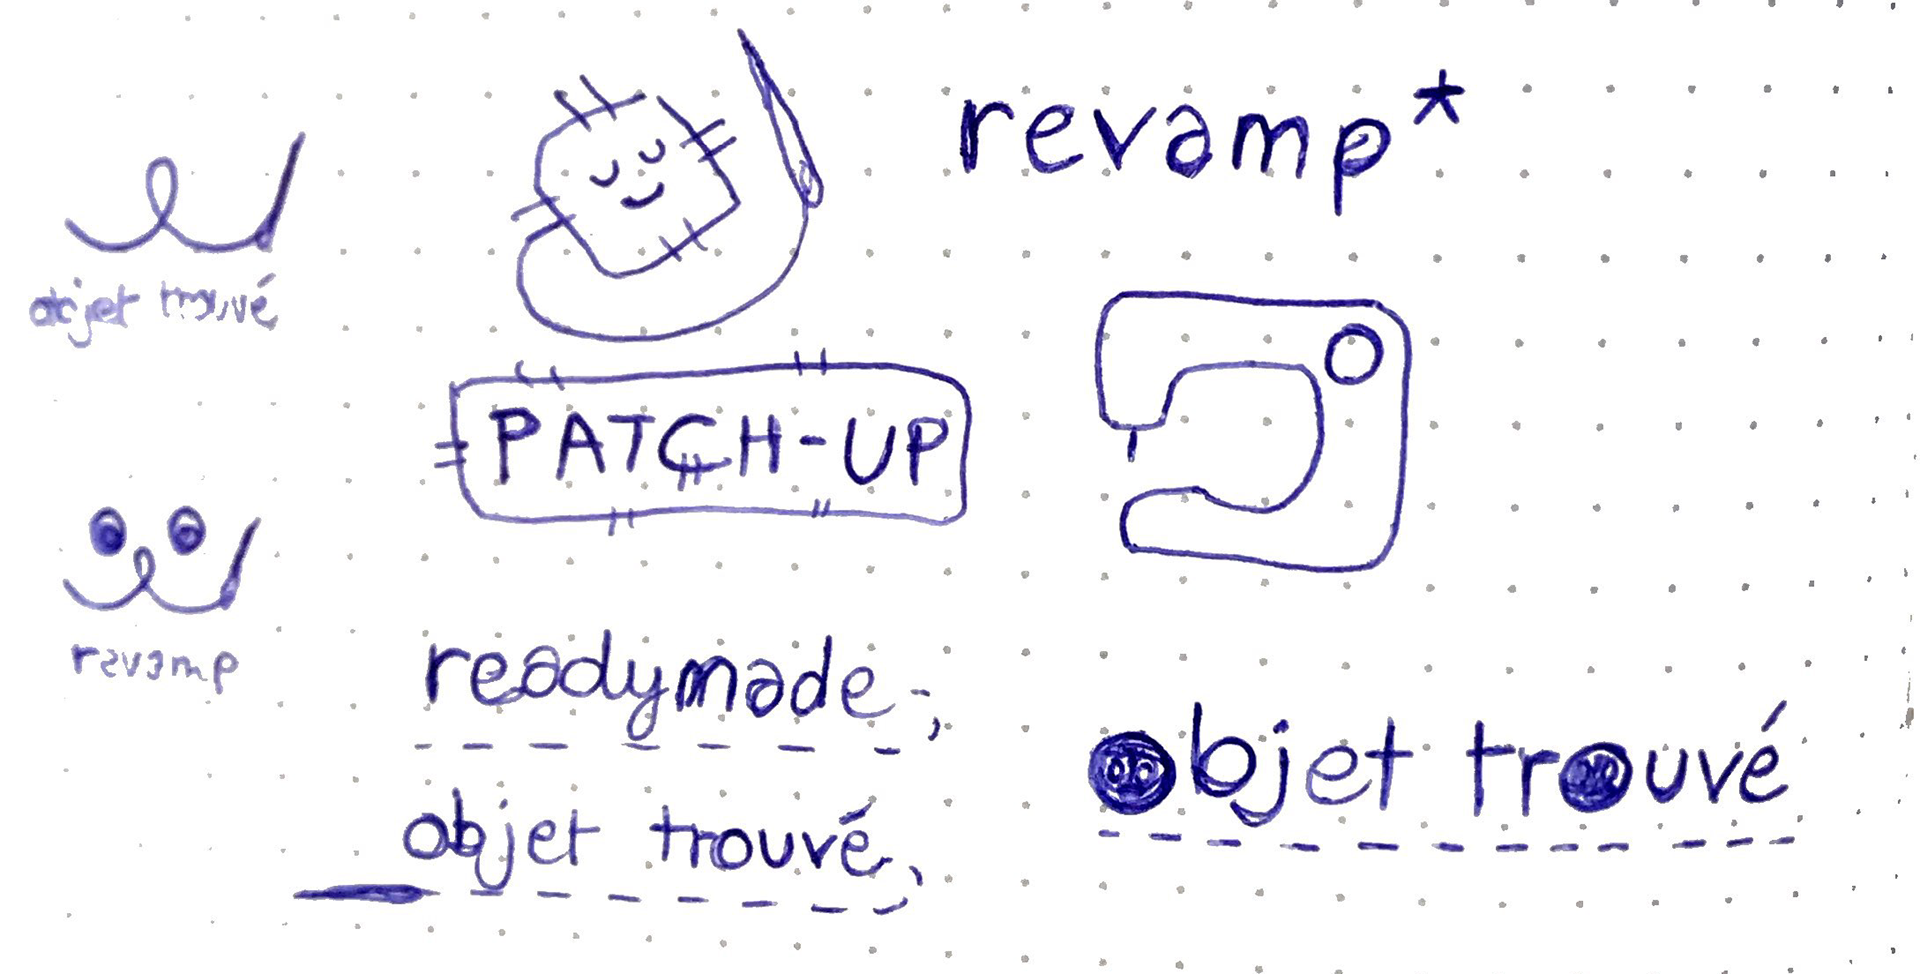 revamp*
objet trouvé
PATCH-UP
revamp
readymade
objet trouvé
objet trouvé